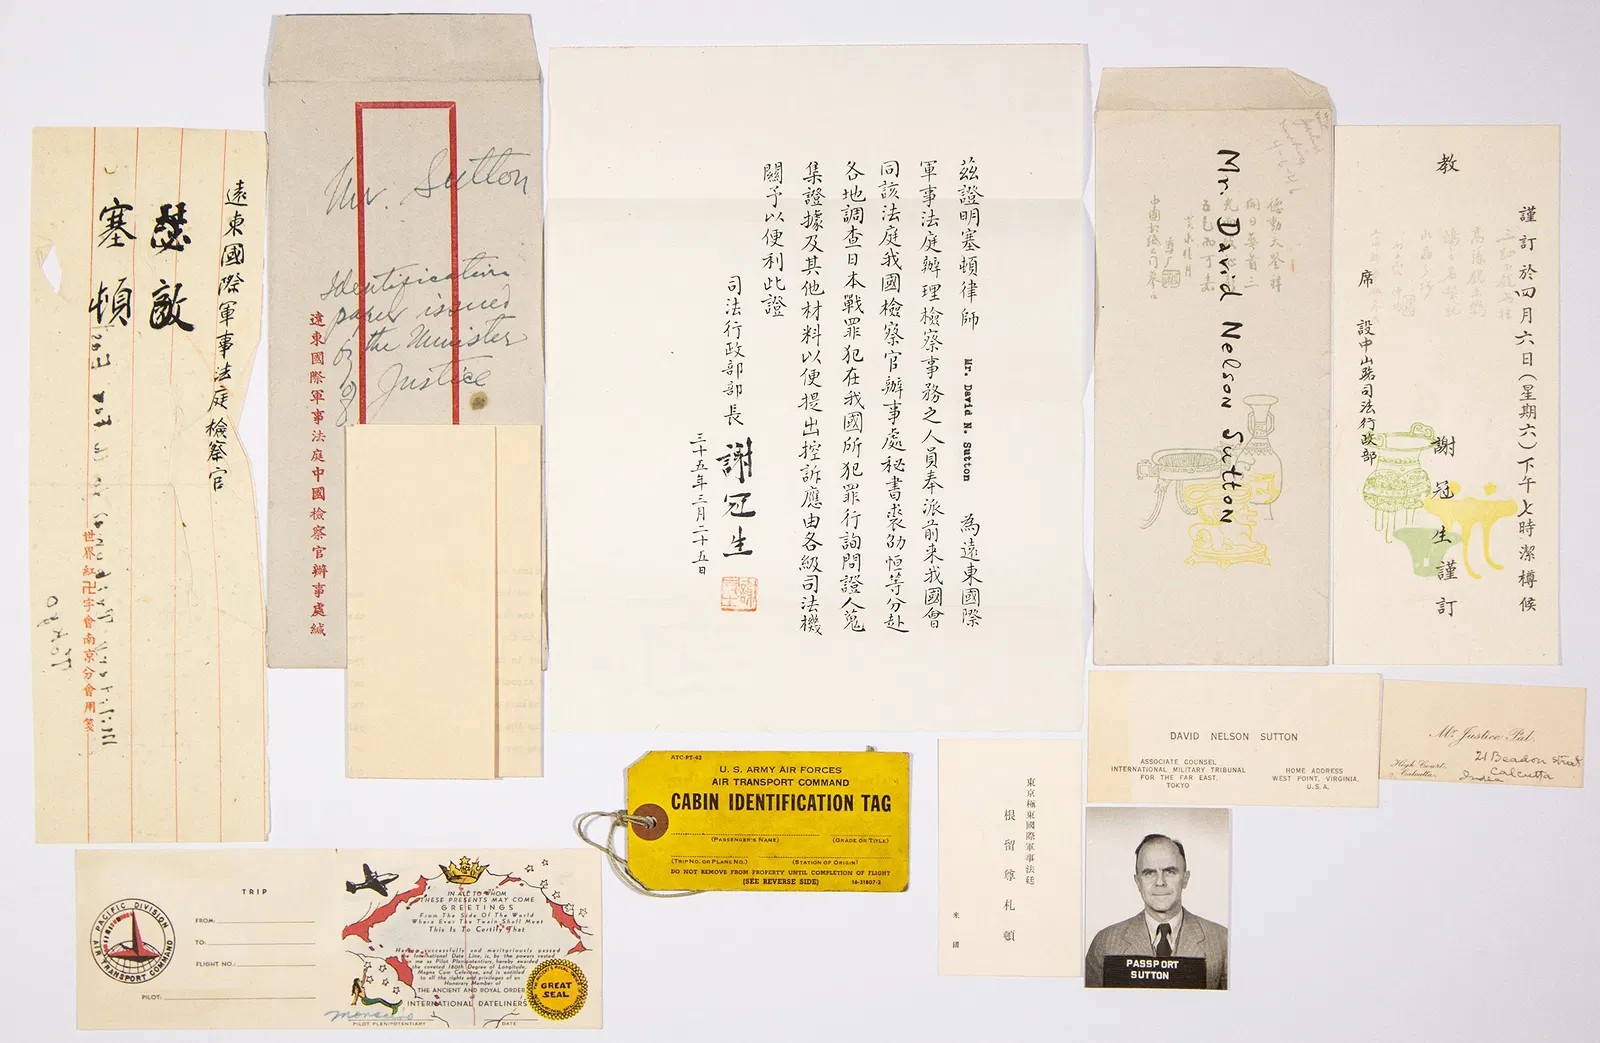 遠東國際軍事法庭檢察官
瑟敵
塞頓
世界紅卍字會南京分會用箋
Mr. Sutton
Identification
paper issued
by the Minister
of Justice
遠東國際軍事法庭中國檢察官辦事處緘
茲證明塞頓律師 Mr. David N. Sutton 為遠東國際
軍事法庭辦理檢察事務之人員奉派前來我國會
同該法庭我國檢察官辦事處秘書裘劭恒等分赴
各地調查日本戰罪犯在我國所犯罪行詢問證人蒐
集證據及其他材料以便提出控訴應由各級司法機
關予以便利此證
司法行政部部長 謝冠生
三十五年三月二十五日
Mr. David Nelson Sutton
謹訂於四月六日(星期六)下午七時潔樽候
教
謝冠生謹訂
席 設中山路司法行政部
DAVID NELSON SUTTON
ASSOCIATE COUNSEL
INTERNATIONAL MILITARY TRIBUNAL
FOR THE FAR EAST.
TOKYO
HOME ADDRESS
WEST POINT, VIRGINIA.
U.S.A.
Mr. Justice Pal.
High Court.
Calcutta.
21 Beadon Street
Calcutta
India
ATC-PT-42
U. S. ARMY AIR FORCES
AIR TRANSPORT COMMAND
CABIN IDENTIFICATION TAG
(PASSENGER'S NAME) (GRADE OR TITLE)
(TRIP NO. OR PLANE NO.) (STATION OF ORIGIN)
DO NOT REMOVE FROM PROPERTY UNTIL COMPLETION OF FLIGHT
(SEE REVERSE SIDE) 16-31807-2
東京極東國際軍事法廷
根留尊札頓
米國
PASSPORT
SUTTON
PACIFIC DIVISION
AIR TRANSPORT COMMAND
TRIP
FROM:
TO:
FLIGHT NO.:
PILOT:
IN ALL TO WHOM
THESE PRESENTS MAY COME
GREETINGS
From The Side Of The World
Where Ever The Twain Shall Meet
This Is To Certify That
Having successfully and meritoriously passed
the International Date Line, is, by the powers vested
in me as Pilot Plenipotentiary, hereby awarded
the coveted 180th Degree of Longitude,
Magna Cum Celeritas, and is entitled
to all the rights and privileges of an
Honorary Member of
THE ANCIENT AND ROYAL ORDER
INTERNATIONAL DATELINERS
GREAT
SEAL
PILOT PLENIPOTENTIARY DATE